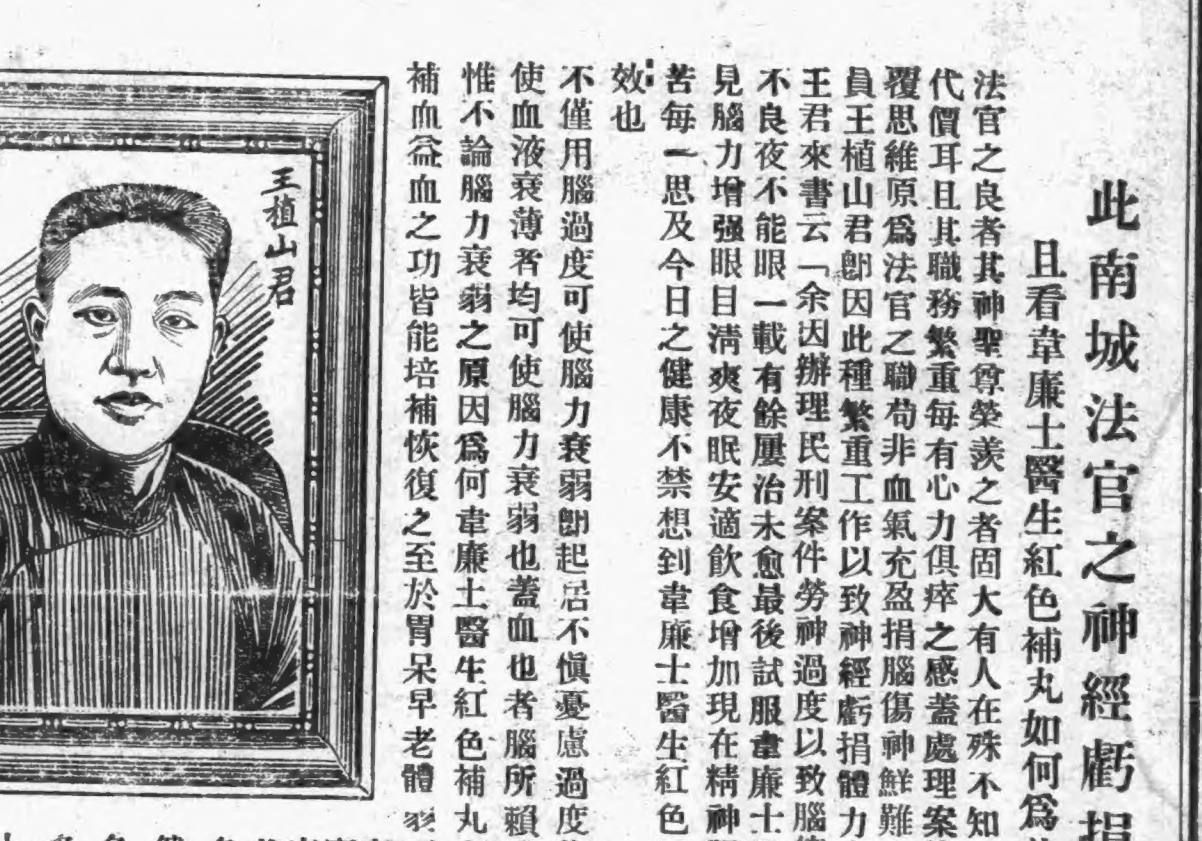 此南城法官之神經虧損
且看韋廉士醫生紅色補丸如何爲
法官之良者其神聖尊榮羨之者固大有人在殊不知
代價耳且其職務繁重每有心力俱瘁之感蓋處理案
覆思維原爲法官之職苟非血氣充盈損腦傷神鮮難
員王植山君卽因此種繁重工作以致神經虧損體力
王君來書云「余因辦理民刑案件勞神過度以致腦
不良夜不能眼一載有餘屢治未愈最後試服韋廉士
見腦力增强眼目淸爽夜眠安適飲食增加現在精神
苦每一思及今日之健康不禁想到韋廉士醫生紅色
效也
不僅用腦過度可使腦力衰弱卽起居不愼憂慮過度
使血液衰薄者均可使腦力衰弱也蓋血也者腦所賴
惟不論腦力衰弱之原因爲何韋廉士醫生紅色補丸
補血益血之功皆能培補恢復之至於胃呆早老體弱
王植山君